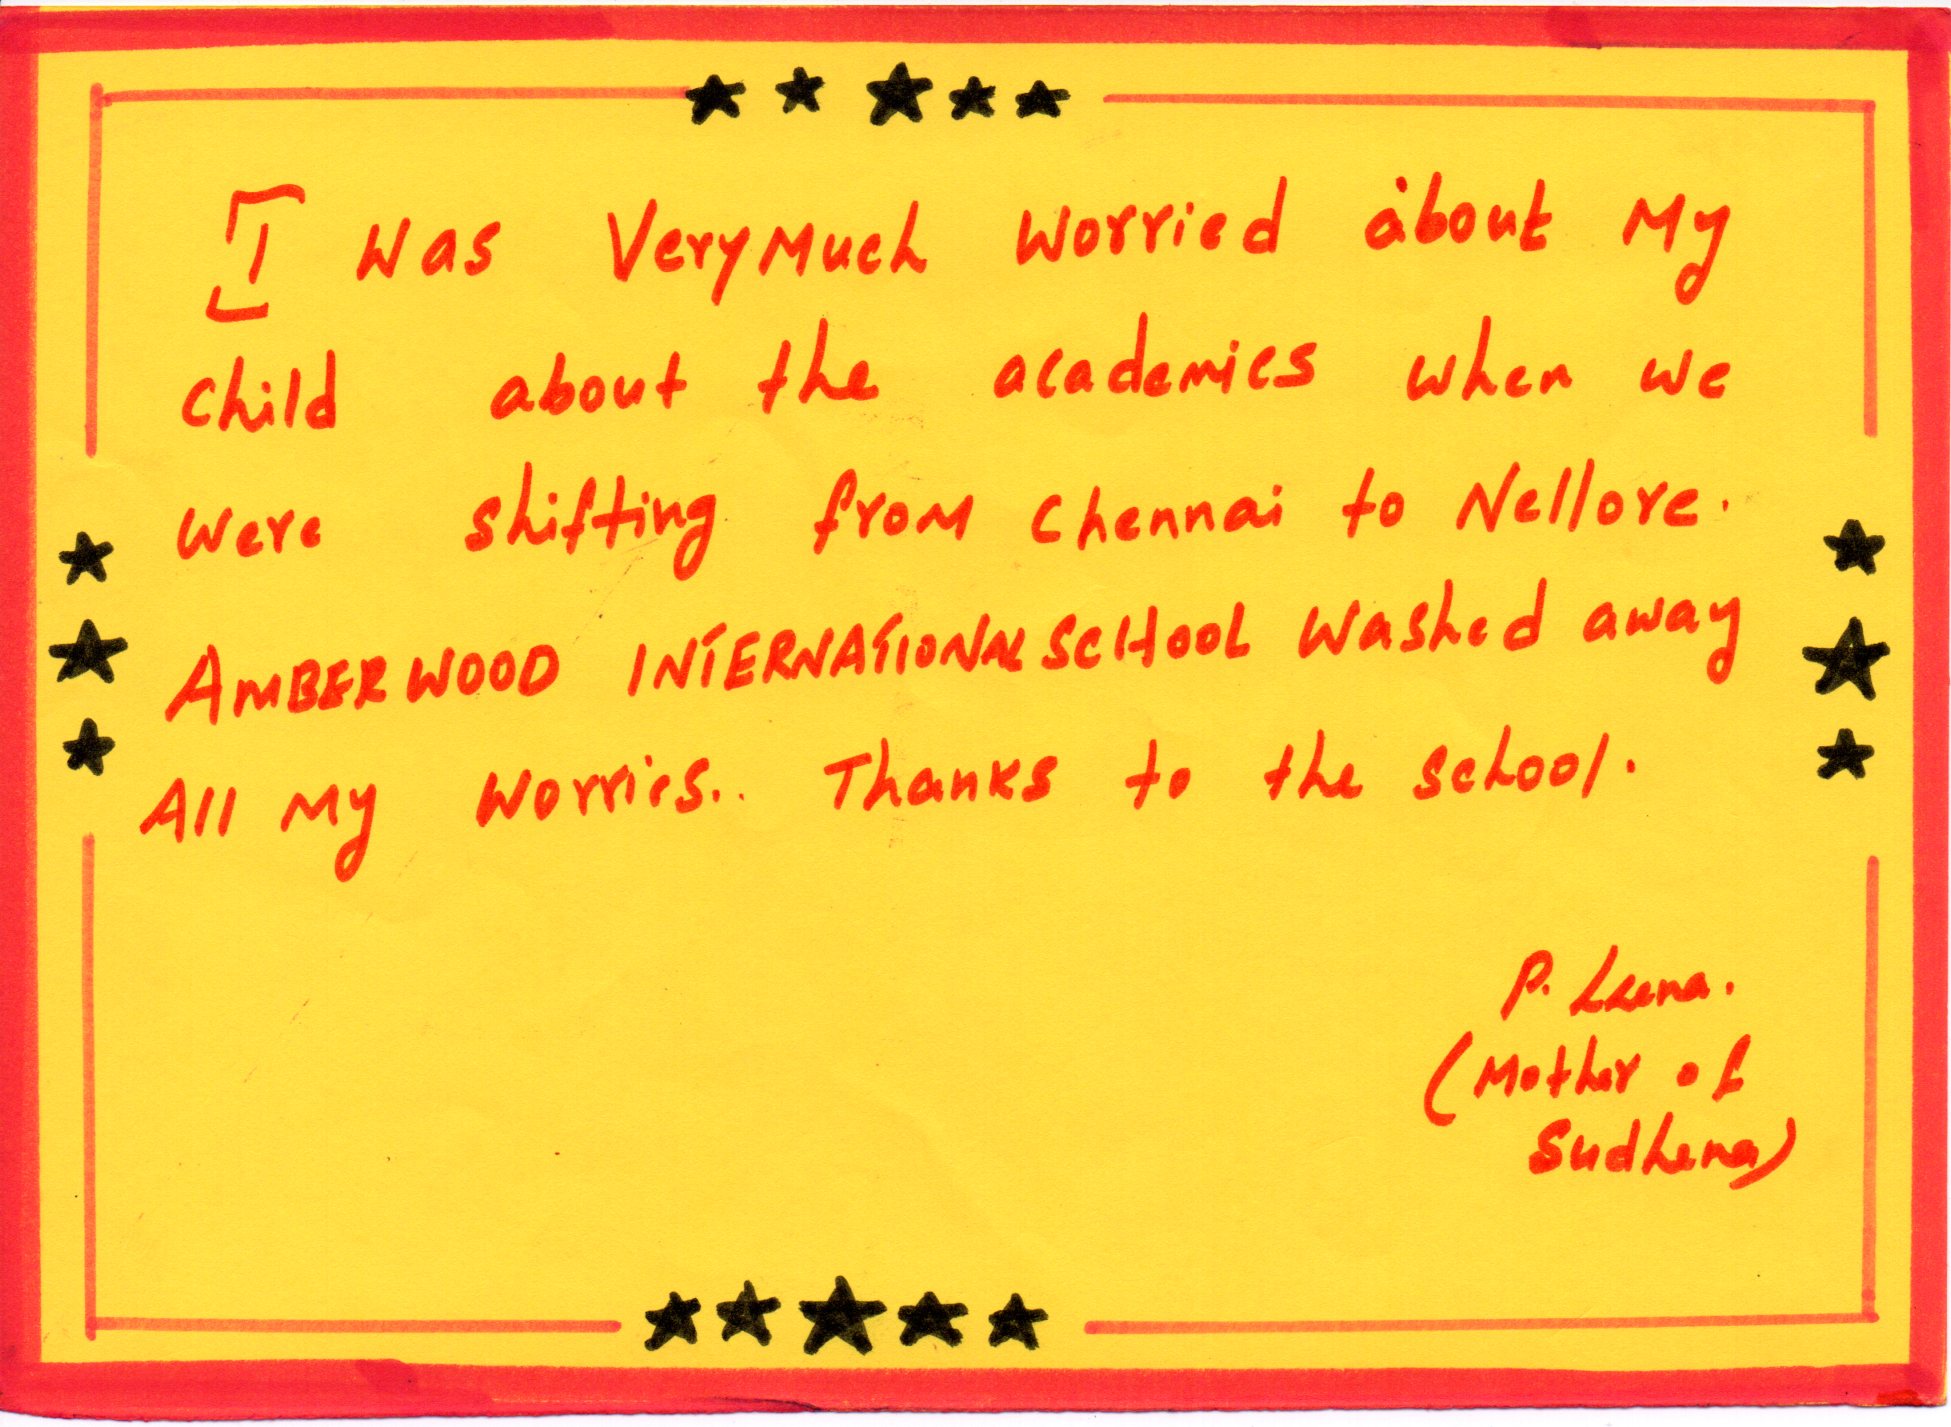 I was Very Much worried about My
child about the academics when we
were shifting from Chennai to Nellore.
AMBERWOOD INTERNATIONAL SCHOOL washed away
All My worries.. Thanks to the school.
P. Leena.
(Mother of
Sudhena)